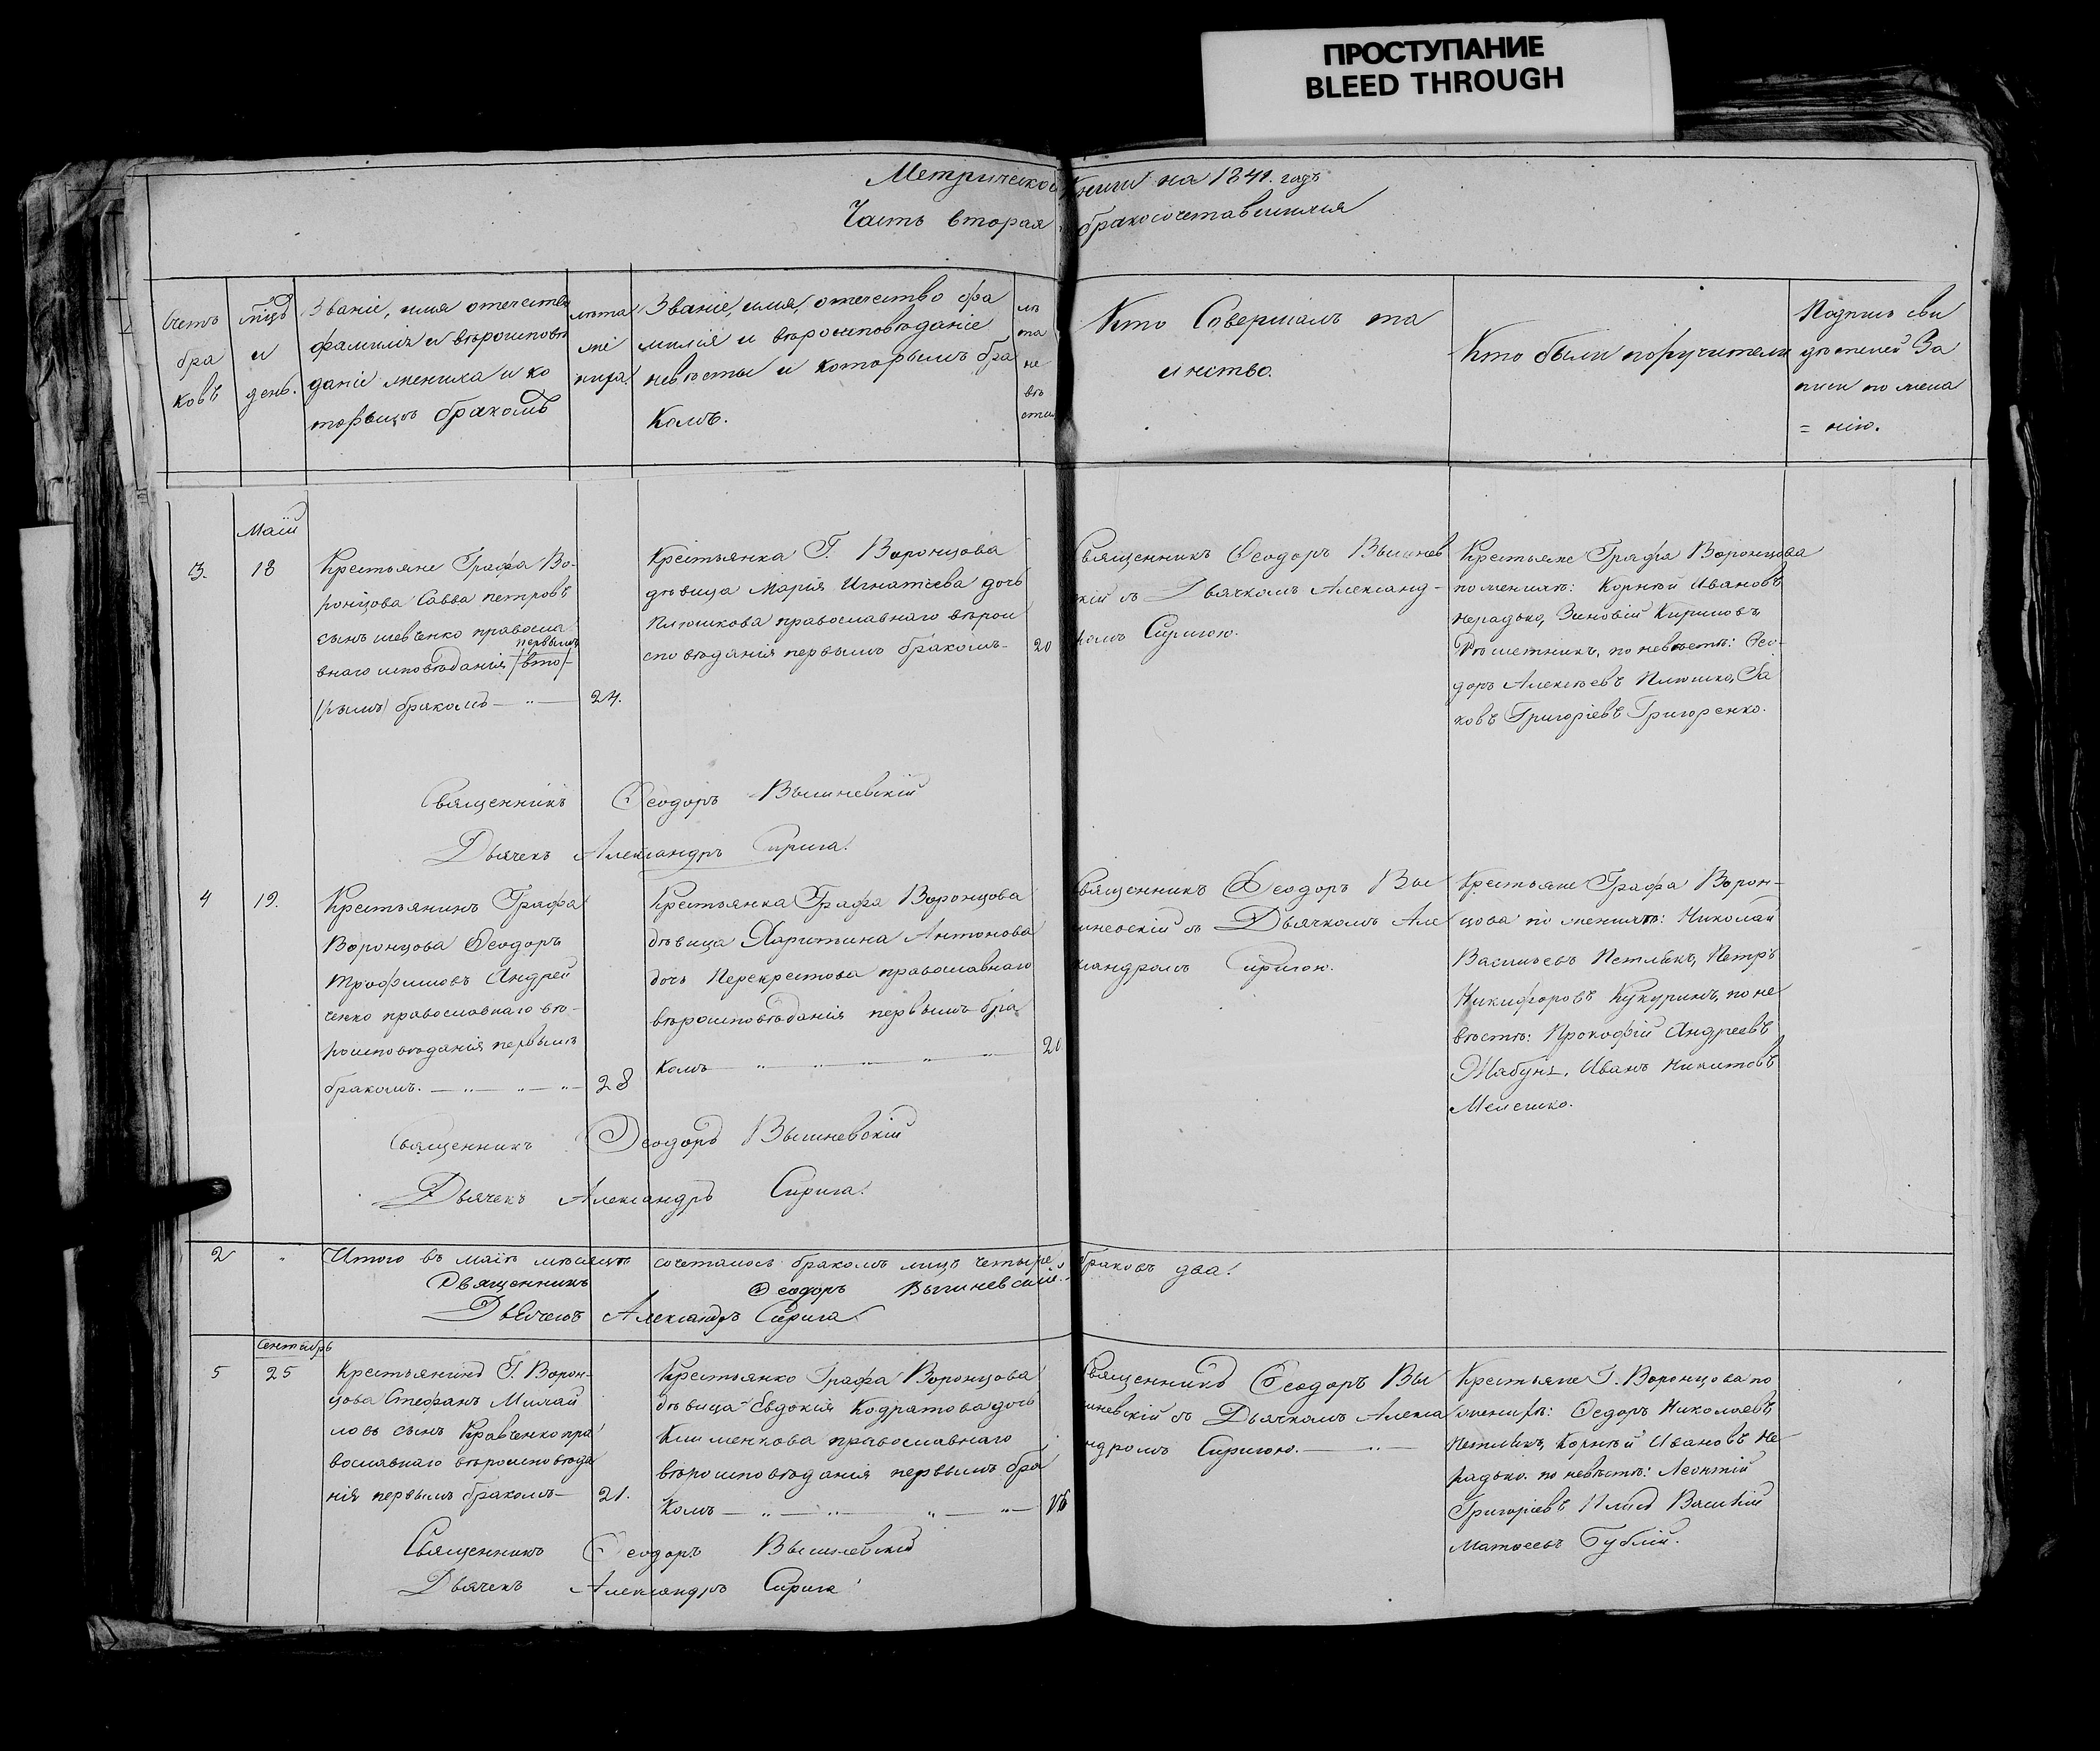 ПРОСТУПАНИЕ
BLEED THROUGH
Метрической Книги на 1841. годъ
Часть вторая бракосочетавшихся
Счетъ
бра
ковъ
мцъ
и
день.
Званіе, имя отечество
фамилія и вѣроисповѣ
даніе жениха и ко
торымъ бракомъ
лѣта
же
ниха.
Званіе, имя, отечество фа
милія и вѣроисповѣданіе
невѣсты и которымъ бра
комъ.
лѣ
та
не
вѣ
сты
Кто Совершалъ та
инство.
Кто были поручители
Подпись сви
дѣтелей За
писи по жела
= нію.
Маій
3.
18
Крестьяне Графа Во-
ронцова Савва петровъ
сынъ шевченко правосла
первымъ
внаго исповѣданія (вто-
рымъ) бракомъ — „ —
24.
Крестьянка Г. Воронцова
дѣвица Марія Игнатіева дочь
Плюшкова православнаго вѣрои
сповѣданія первымъ бракомъ-
20
Священникъ Ѳеодоръ Вышнев
скій съ Дьячкомъ Александ-
ромъ Сиригою.
Крестьяне Графа Воронцова
по женихѣ: Корнѣй Ивановъ
нерадько, Зиновій Кириловъ
Рѣшетникъ, по невѣстѣ: Ѳео-
доръ Алексѣевъ Плюшко, Яковъ Григоріевъ Григоренко.
Священникъ Ѳеодоръ Вышневскій
Дьячекъ Александръ Сирига.
4
19.
Крестьянинъ Графа
Воронцова Ѳеодоръ
Трофимовъ Андрей
ченко православнаго вѣ-
роисповѣданія первымъ
бракомъ. — „ — „ — „ —
28
Крестьянка Графа Воронцова
дѣвица Харитина Антонова
дочь Перекрестова православнаго
вѣроисповѣданія первымъ бра
комъ — „ — „ — „ —
20
Священникъ Ѳеодоръ Вы
шневскій съ Дьячкомъ Але
ксандромъ Сиригою.
Крестьяне Графа Ворон-
цова по женихѣ: Николай
Васильевъ Петликъ, Петръ
Никифоровъ Кукуринъ, по не
вѣстѣ: Прокофій Андреевъ
Жабуня, Иванъ Никитовъ
Мелешко.
Священникъ Ѳеодоръ Вышневскій
Дьячекъ Александръ Сирига.
2
Итого въ маіѣ мѣсяцѣ сочеталось бракомъ лицъ четыре, браковъ два!
Священникъ Ѳеодоръ Вышневскій.
Дьячекъ Александръ Сирига.
Сентябрь
5
25
Крестьянинъ Г. Ворон-
цова Стефанъ Михай
ловъ сынъ Кравченко пра
вославнаго вѣроисповѣда
нія первымъ бракомъ —
21.
Крестьянко Графа Воронцова
дѣвица Евдокія Кодратова дочь
Клименкова православнаго
вѣроисповѣданія первымъ бра
комъ — „ — „ — „ — „ —
Священникъ Ѳеодоръ Вы
шневскій съ Дьячкомъ Алекса
ндромъ Сиригою. — „ —
Крестьяне Г. Воронцова по
женихѣ: Ѳедоръ Николаевъ
Петликъ, Корнѣй Ивановъ Не
радько. по невѣстѣ: Леонтій
Григоріевъ Василій
Матѳеевъ Бублій.
Священникъ Ѳеодоръ Вышневскій
Дьячекъ Александръ Сирига